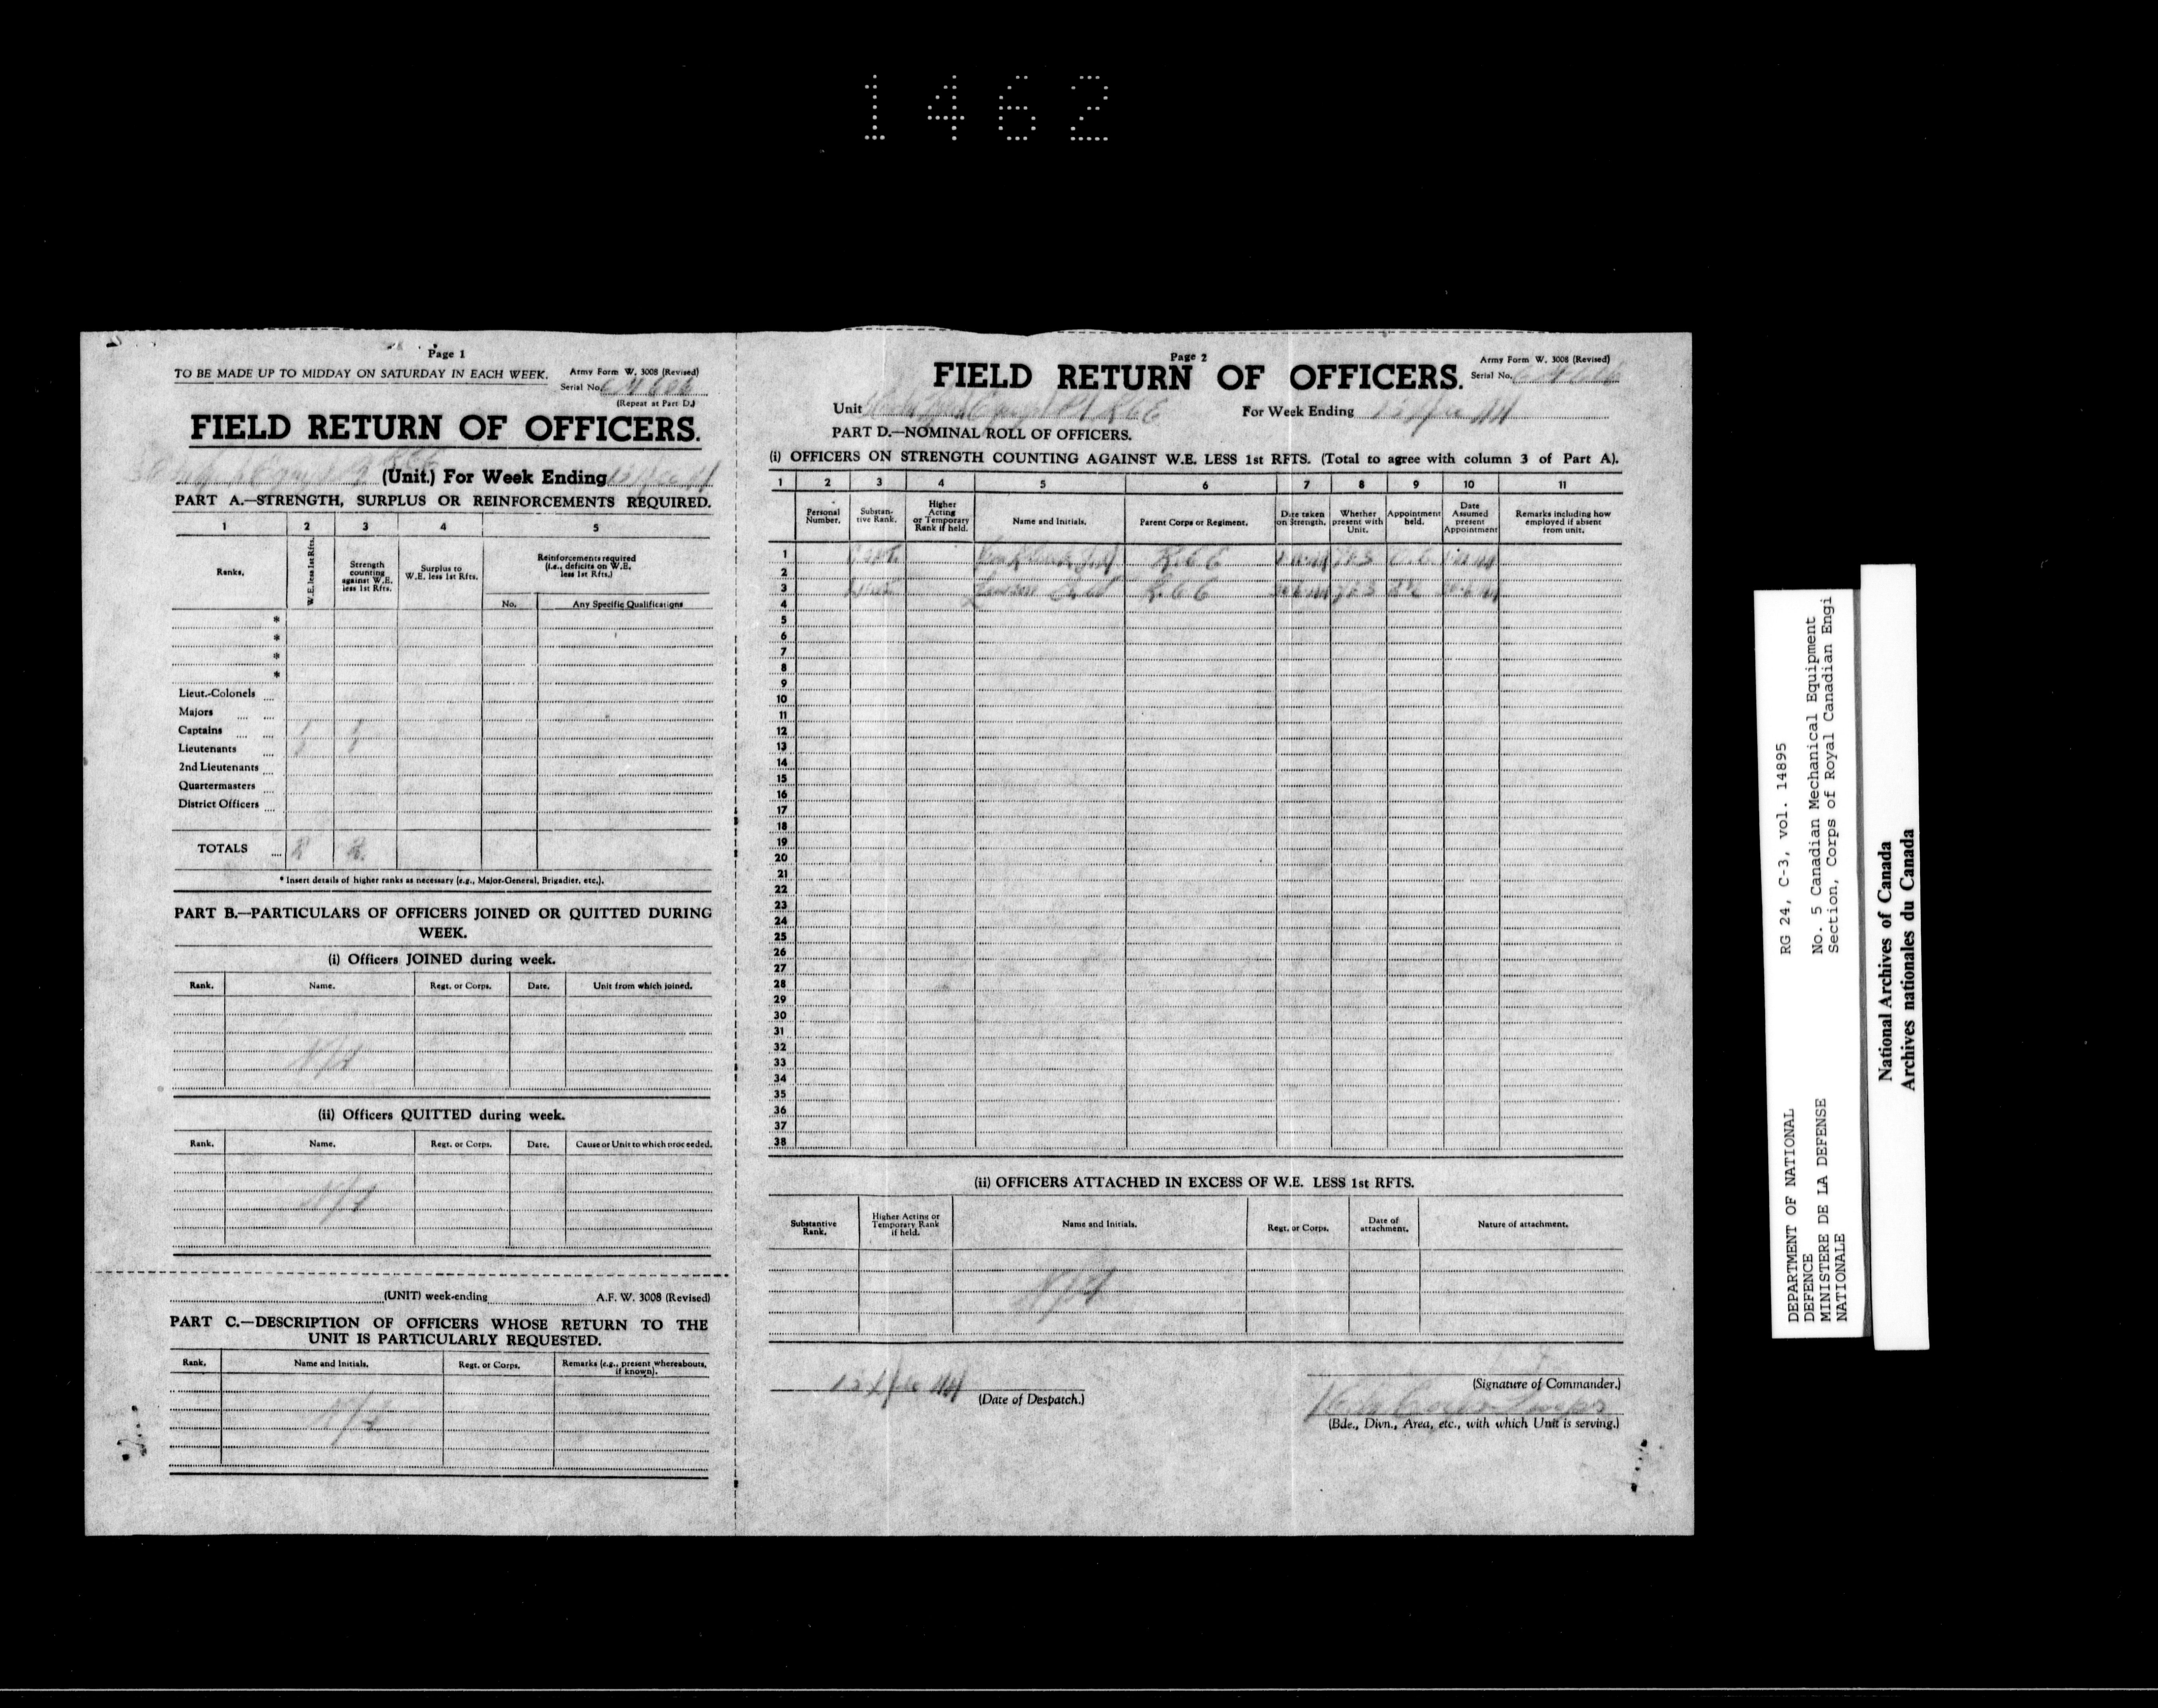 1462
Page 1
TO BE MADE UP TO MIDDAY ON SATURDAY IN EACH WEEK.
Army Form W. 3008 (Revised)
Serial No.
(Repeat at Part D.)
FIELD RETURN OF OFFICERS.
(Unit.) For Week Ending
PART A.—STRENGTH, SURPLUS OR REINFORCEMENTS REQUIRED.
1 2 3 4 5
Ranks.
W.E. less 1st Rfts.
Strength counting against W.E. less 1st Rfts.
Surplus to W.E. less 1st Rfts.
Reinforcements required (i.e., deficits on W.E. less 1st Rfts.)
No. Any Specific Qualifications
*
*
*
*
Lieut.-Colonels ....
Majors .... ....
Captains .... .... 1 1
Lieutenants .... 1 1
2nd Lieutenants ....
Quartermasters ....
District Officers ....
TOTALS .... 2 2
* Insert details of higher ranks as necessary (e.g., Major-General, Brigadier, etc.).
PART B.—PARTICULARS OF OFFICERS JOINED OR QUITTED DURING
WEEK.
(i) Officers JOINED during week.
Rank. Name. Regt. or Corps. Date. Unit from which joined.
(ii) Officers QUITTED during week.
Rank. Name. Regt. or Corps. Date. Cause or Unit to which proceeded.
(UNIT) week-ending A.F. W. 3008 (Revised)
PART C.—DESCRIPTION OF OFFICERS WHOSE RETURN TO THE
UNIT IS PARTICULARLY REQUESTED.
Rank. Name and Initials. Regt. or Corps. Remarks (e.g., present whereabouts, if known).
Page 2
Army Form W. 3008 (Revised)
FIELD RETURN OF OFFICERS.
Serial No.
Unit For Week Ending
PART D.—NOMINAL ROLL OF OFFICERS.
(i) OFFICERS ON STRENGTH COUNTING AGAINST W.E. LESS 1st RFTS. (Total to agree with column 3 of Part A).
1 2 3 4 5 6 7 8 9 10 11
Personal Number.
Substantive Rank.
Higher Acting or Temporary Rank if held.
Name and Initials.
Parent Corps or Regiment.
Date taken on Strength.
Whether present with Unit.
Appointment held.
Date Assumed present Appointment
Remarks including how employed if absent from unit.
1 Capt. YES O.C.
2
3 YES
4
5
6
7
8
9
10
11
12
13
14
15
16
17
18
19
20
21
22
23
24
25
26
27
28
29
30
31
32
33
34
35
36
37
38
(ii) OFFICERS ATTACHED IN EXCESS OF W.E. LESS 1st RFTS.
Substantive Rank.
Higher Acting or Temporary Rank if held.
Name and Initials.
Regt. or Corps.
Date of attachment.
Nature of attachment.
(Date of Despatch.)
(Signature of Commander.)
(Bde., Divn., Area, etc., with which Unit is serving.)
DEPARTMENT OF NATIONAL
DEFENCE
MINISTERE DE LA DEFENSE
NATIONALE
RG 24, C-3, vol. 14895
No. 5 Canadian Mechanical Equipment
Section, Corps of Royal Canadian Engi
National Archives of Canada
Archives nationales du Canada